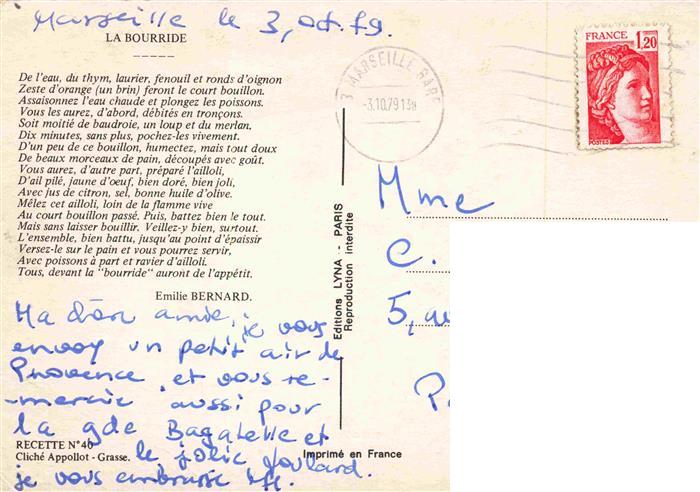 Marseille le 3, oct. 79.
LA BOURRIDE
-----
De l'eau, du thym, laurier, fenouil et ronds d'oignon
Zeste d'orange (un brin) feront le court bouillon.
Assaisonnez l'eau chaude et plongez les poissons.
Vous les aurez, d'abord, débités en tronçons.
Soit moitié de baudroie, un loup et du merlan.
Dix minutes, sans plus, pochez-les vivement.
D'un peu de ce bouillon, humectez, mais tout doux
De beaux morceaux de pain, découpés avec goût.
Vous aurez, d'autre part, préparé l'ailloli,
D'ail pilé, jaune d'œuf, bien doré, bien joli,
Avec jus de citron, sel, bonne huile d'olive.
Mêlez cet ailloli, loin de la flamme vive
Au court bouillon passé. Puis, battez bien le tout.
Mais sans laisser bouillir. Veillez-y bien, surtout.
L'ensemble, bien battu, jusqu'au point d'épaissir
Versez-le sur le pain et vous pourrez servir,
Avec poissons à part et ravier d'ailloli.
Tous, devant la "bourride" auront de l'appétit.
Emilie BERNARD.
Ma chère amie, je vous
envoy un petit air de
Provence, et vous re-
-mercie aussi pour
la gde Bagatelle et
le jolie foulard.
je vous embrasse
RECETTE N°40
Cliché Appollot - Grasse.
Editions LYNA - PARIS
Reproduction interdite
Imprimé en France
MARSEILLE GARE
-3.10.79
FRANCE 1,20
POSTES
Mme
C.
5,